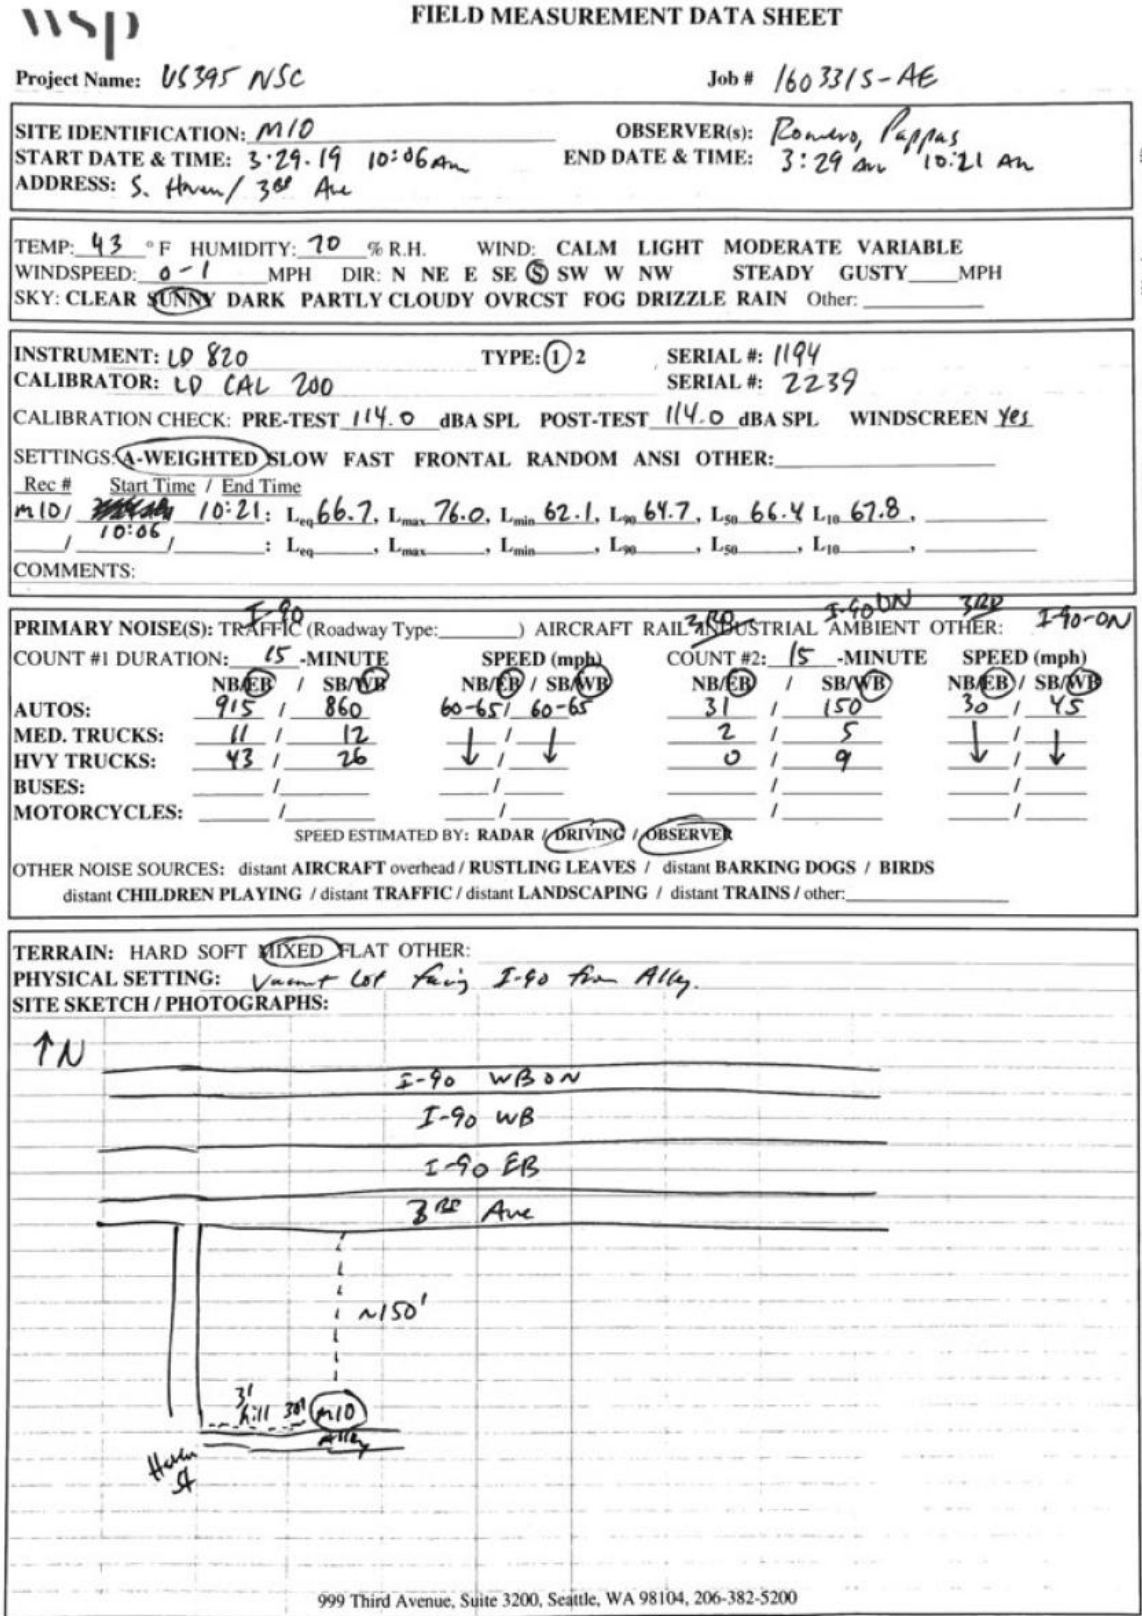 wsp
FIELD MEASUREMENT DATA SHEET
Project Name: US395 NSC Job # 1603315-AE
SITE IDENTIFICATION: M10 OBSERVER(s): Romero, Pappas
START DATE & TIME: 3.29.19 10:06 Am END DATE & TIME: 3:29 Am 10:21 Am
ADDRESS: S. Haven / 3RD Ave
TEMP: 43 °F HUMIDITY: 70 % R.H. WIND: CALM LIGHT MODERATE VARIABLE
WINDSPEED: 0-1 MPH DIR: N NE E SE S SW W NW STEADY GUSTY____MPH
SKY: CLEAR SUNNY DARK PARTLY CLOUDY OVRCST FOG DRIZZLE RAIN Other:
INSTRUMENT: LD 820 TYPE: 1 2 SERIAL #: 1194
CALIBRATOR: LD CAL 200 SERIAL #: 2239
CALIBRATION CHECK: PRE-TEST 114.0 dBA SPL POST-TEST 114.0 dBA SPL WINDSCREEN Yes
SETTINGS: A-WEIGHTED SLOW FAST FRONTAL RANDOM ANSI OTHER:
Rec # Start Time / End Time
M10 / 10:21: Leq 66.7, Lmax 76.0, Lmin 62.1, L90 64.7, L50 66.4 L10 67.8,
10:06
/ / : Leq, Lmax, Lmin, L90, L50, L10,
COMMENTS:
I-90 3RD I-90 ON 3RD I-90-ON
PRIMARY NOISE(S): TRAFFIC (Roadway Type:________) AIRCRAFT RAIL INDUSTRIAL AMBIENT OTHER:
COUNT #1 DURATION: 15 -MINUTE SPEED (mph) COUNT #2: 15 -MINUTE SPEED (mph)
NB/EB / SB/WB NB/EB / SB/WB NB/EB / SB/WB NB/EB / SB/WB
AUTOS: 915 / 860 60-65 / 60-65 31 / 150 30 / 45
MED. TRUCKS: 11 / 12 ↓ / ↓ 2 / 5 ↓ / ↓
HVY TRUCKS: 43 / 26 0 / 9
BUSES: / / / /
MOTORCYCLES: / / / /
SPEED ESTIMATED BY: RADAR / DRIVING / OBSERVER
OTHER NOISE SOURCES: distant AIRCRAFT overhead / RUSTLING LEAVES / distant BARKING DOGS / BIRDS
distant CHILDREN PLAYING / distant TRAFFIC / distant LANDSCAPING / distant TRAINS / other:
TERRAIN: HARD SOFT MIXED FLAT OTHER:
PHYSICAL SETTING: Vacant Lot facing I-90 from Alley.
SITE SKETCH / PHOTOGRAPHS:
↑N
I-90 WB ON
I-90 WB
I-90 EB
3RD Ave
~150'
3'
hill 30' M10
Alley
Haven
St
999 Third Avenue, Suite 3200, Seattle, WA 98104, 206-382-5200